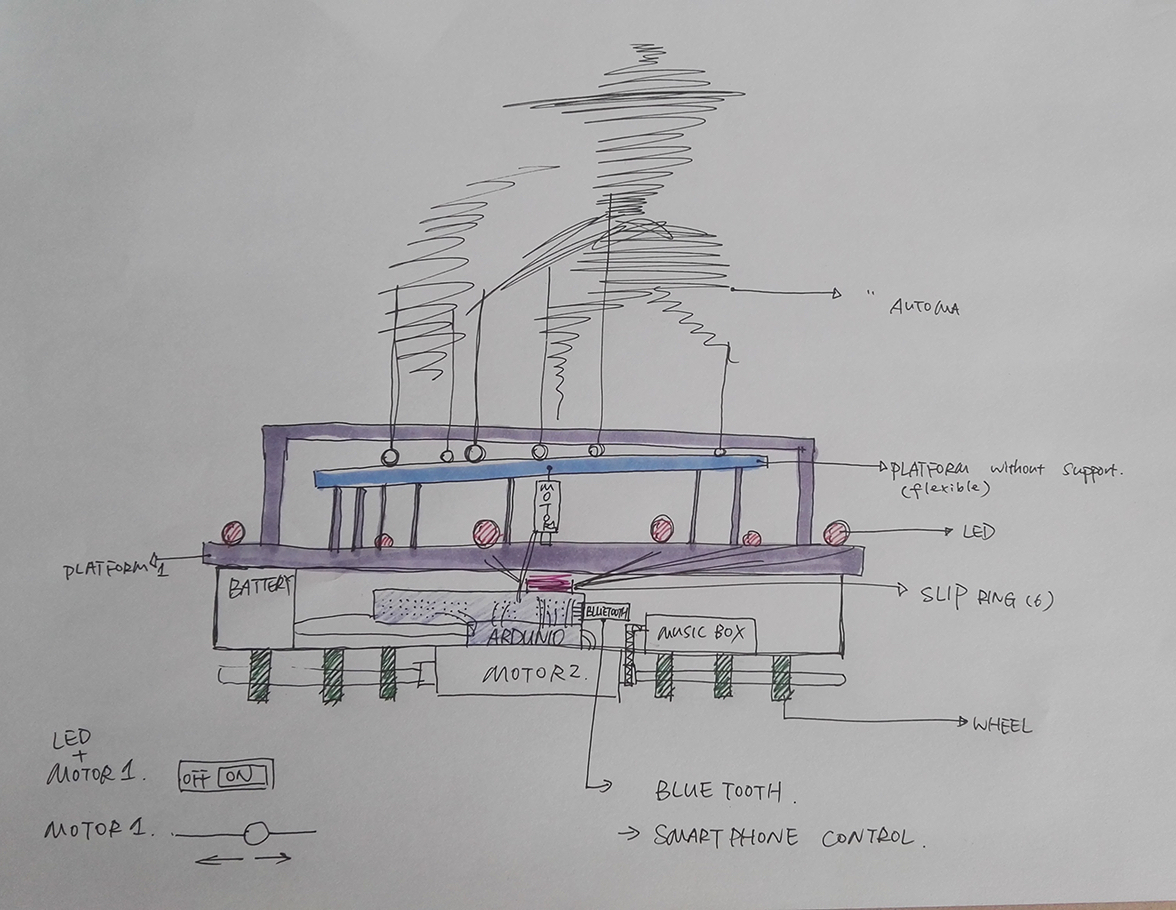 " AUTOMA
PLATFORM without support.
(flexible)
MOTOR
LED
PLATFORM 1
BATTERY
SLIP RING (6)
BLUETOOTH
ARDUNIO
MUSIC BOX
MOTOR 2.
WHEEL
LED
+
MOTOR 1. OFF ON
MOTOR 1.
BLUE TOOTH.
→ SMART PHONE CONTROL.